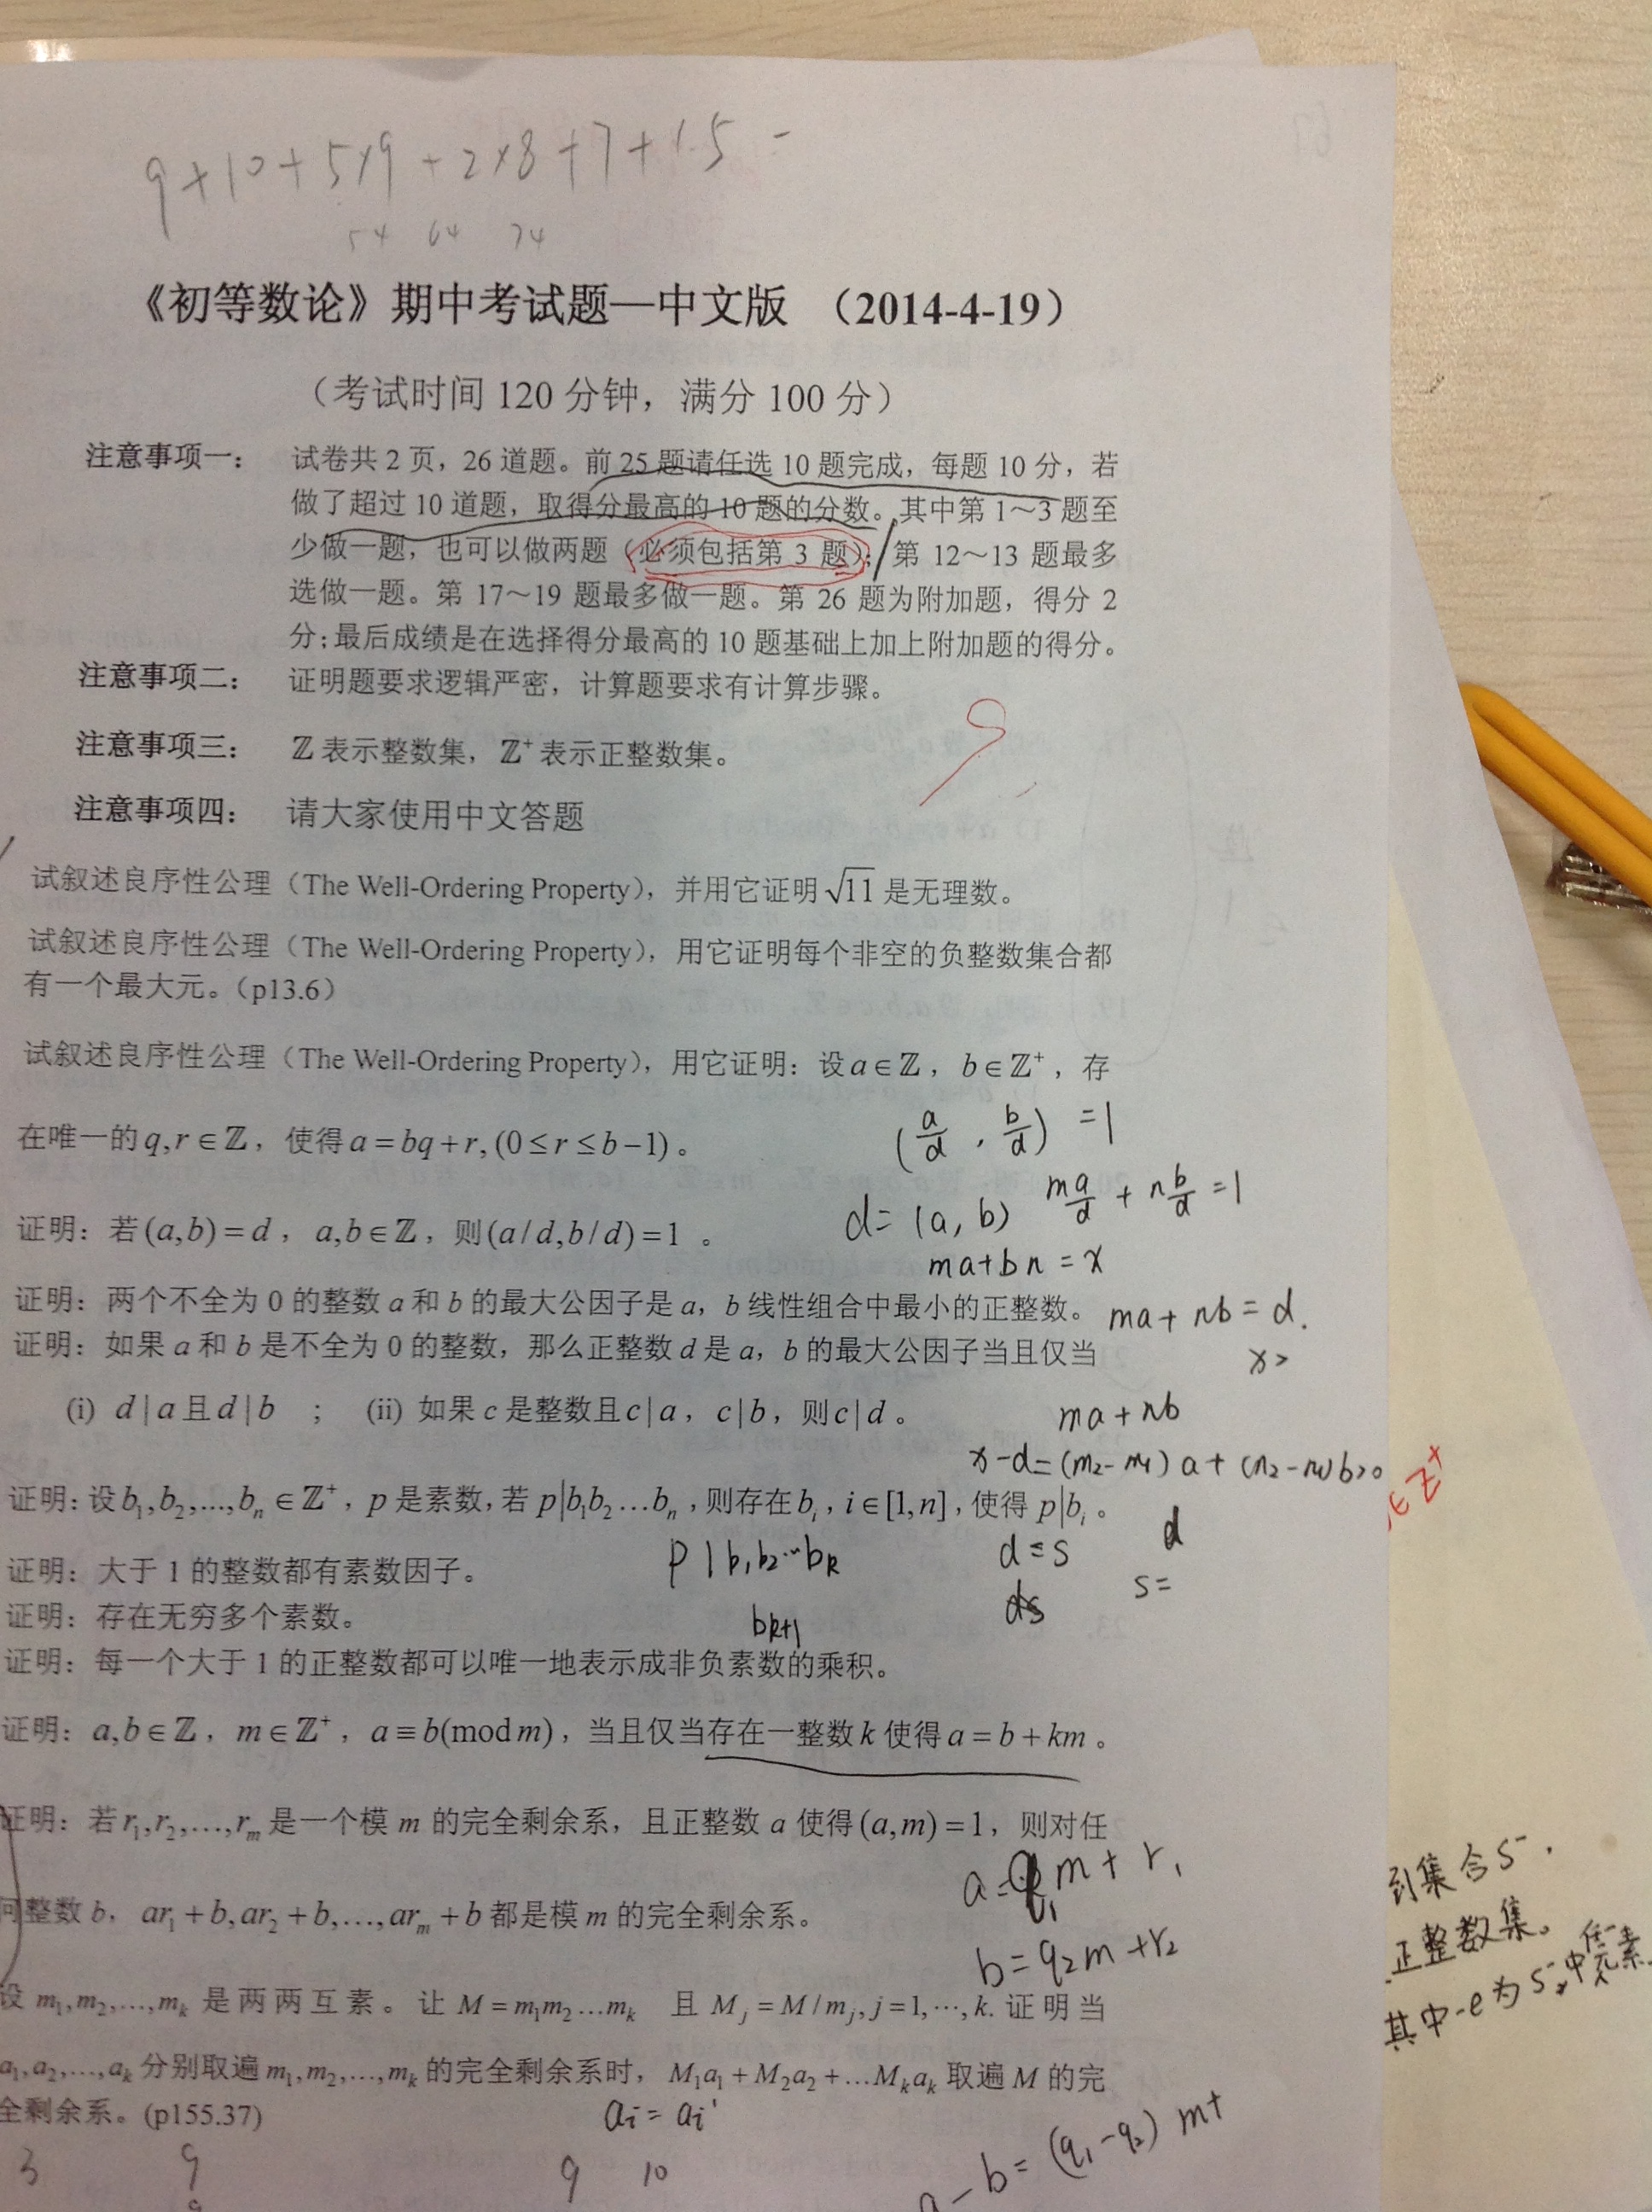 9+10+5×9+2×8+7+1.5=
54 64 74
《初等数论》期中考试题—中文版 （2014-4-19）
（考试时间 120 分钟，满分 100 分）
注意事项一： 试卷共 2 页，26 道题。前 25 题请任选 10 题完成，每题 10 分，若
做了超过 10 道题，取得分最高的 10 题的分数。其中第 1～3 题至
少做一题，也可以做两题（必须包括第 3 题）；第 12～13 题最多
选做一题。第 17～19 题最多做一题。第 26 题为附加题，得分 2
分；最后成绩是在选择得分最高的 10 题基础上加上附加题的得分。
注意事项二： 证明题要求逻辑严密，计算题要求有计算步骤。
注意事项三： ℤ 表示整数集，ℤ⁺ 表示正整数集。
9
注意事项四： 请大家使用中文答题
试叙述良序性公理（The Well-Ordering Property），并用它证明 √11 是无理数。
试叙述良序性公理（The Well-Ordering Property），用它证明每个非空的负整数集合都
有一个最大元。（p13.6）
试叙述良序性公理（The Well-Ordering Property），用它证明：设 a∈ℤ，b∈ℤ⁺，存
在唯一的 q,r∈ℤ，使得 a=bq+r,(0≤r≤b−1)。
(a/d , b/d) =1
证明：若 (a,b)=d，a,b∈ℤ，则 (a/d,b/d)=1 。
d=(a,b) ma/d + nb/d =1
ma+bn=x
证明：两个不全为 0 的整数 a 和 b 的最大公因子是 a，b 线性组合中最小的正整数。
ma+nb=d.
证明：如果 a 和 b 是不全为 0 的整数，那么正整数 d 是 a，b 的最大公因子当且仅当
x>
(i) d|a 且 d|b ； (ii) 如果 c 是整数且 c|a，c|b，则 c|d。
ma+nb
x-d=(m₂-m₁)a+(n₂-n₁)b>0
∈Z⁺
证明：设 b₁,b₂,...,bₙ∈ℤ⁺，p 是素数，若 p|b₁b₂…bₙ，则存在 bᵢ，i∈[1,n]，使得 p|bᵢ。
p|b₁b₂…bₖ d=s d
证明：大于 1 的整数都有素数因子。
s=
证明：存在无穷多个素数。
bₖ₊₁ ds
证明：每一个大于 1 的正整数都可以唯一地表示成非负素数的乘积。
证明：a,b∈ℤ，m∈ℤ⁺，a≡b(mod m)，当且仅当存在一整数 k 使得 a=b+km。
证明：若 r₁,r₂,…,rₘ 是一个模 m 的完全剩余系，且正整数 a 使得 (a,m)=1，则对任
a=q₁m+r₁
何整数 b，ar₁+b,ar₂+b,…,arₘ+b 都是模 m 的完全剩余系。
b=q₂m+r₂
到集合S⁻.
正整数集。
其中-e为S⁻中任一元素
设 m₁,m₂,…,mₖ 是两两互素。让 M=m₁m₂…mₖ 且 Mⱼ=M/mⱼ,j=1,⋯,k. 证明当
a₁,a₂,…,aₖ 分别取遍 m₁,m₂,…,mₖ 的完全剩余系时，M₁a₁+M₂a₂+…Mₖaₖ 取遍 M 的完
全剩余系。(p155.37)
aᵢ=aᵢ'
a-b=(q₁-q₂)m+
3 9 9 10